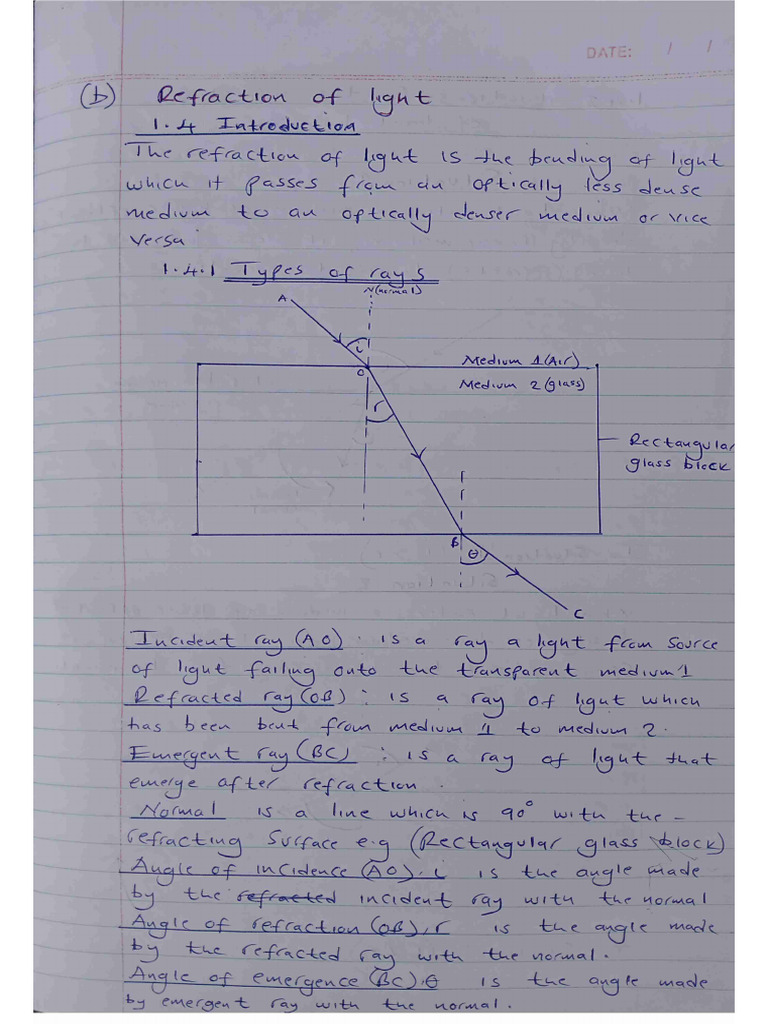 DATE: / /
(b) Refraction of light
1.4 Introduction
The refraction of light is the bending of light
which it passes from an optically less dense
medium to an optically denser medium or vice
versa
1.4.1 Types of rays
N(normal)
A
i
Medium 1 (Air)
O
Medium 2 (glass)
r
Rectangular
glass block
B
θ
C
Incident ray (AO) : is a ray a light from source
of light failing onto the transparent medium 1
Refracted ray (OB) : is a ray of light which
has been bent from medium 1 to medium 2.
Emergent ray (BC) : is a ray of light that
emerge after refraction.
Normal is a line which is 90° with the -
refracting Surface e.g (Rectangular glass block)
Angle of incidence (AO). i is the angle made
by the refracted incident ray with the normal
Angle of refraction (OB), r is the angle made
by the refracted ray with the normal.
Angle of emergence (BC). θ is the angle made
by emergent ray with the normal.